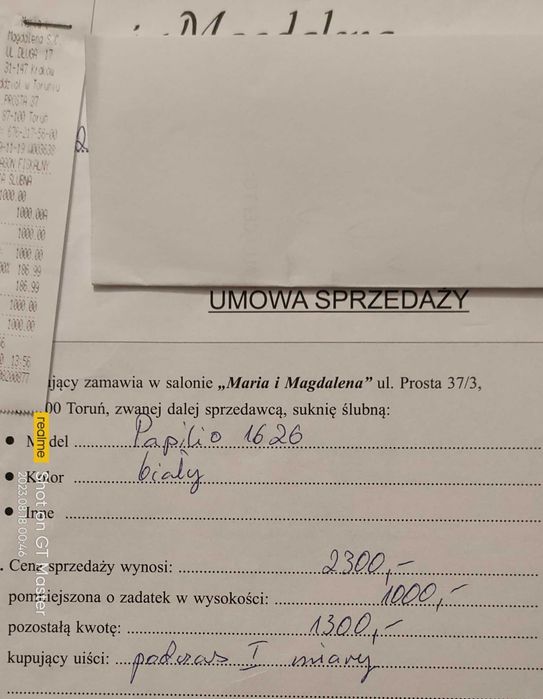 Magdalena S.C.
UL DŁUGA 17
31-147 Kraków
PROSTA 37
87-100 Toruń
676-217-56-00
1000.00
1000.00A
1000.00
1000.00
186.99
186.99
1000.00
1000.00
13:56
i Magdalena
UMOWA SPRZEDAŻY
jący zamawia w salonie „Maria i Magdalena” ul. Prosta 37/3,
00 Toruń, zwanej dalej sprzedawcą, suknię ślubną:
• Model Papilio 1626
• Kolor biały
• Inne
Cena sprzedaży wynosi: 2300,-
pomniejszona o zadatek w wysokości: 1000,-
pozostałą kwotę: 1300,-
kupujący uiści: podczas I miary
realme Shot on GT Master
2023.08.18 00:46